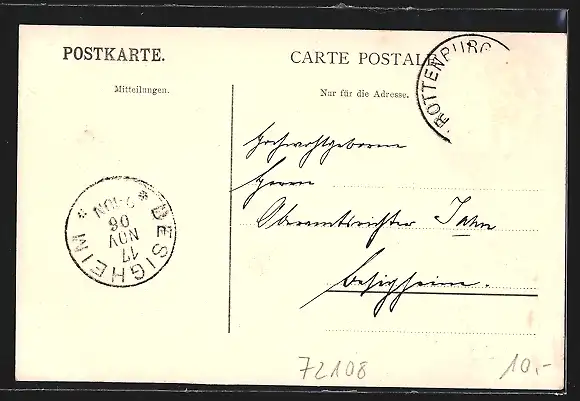 POSTKARTE.
CARTE POSTALE
Mitteilungen.
Nur für die Adresse.
ROTTENBURG
Hochwohlgeboren
Herrn
Oberamtsrichter Jahn
Besigheim.
BESIGHEIM
17
NOV
06
72108
10.-